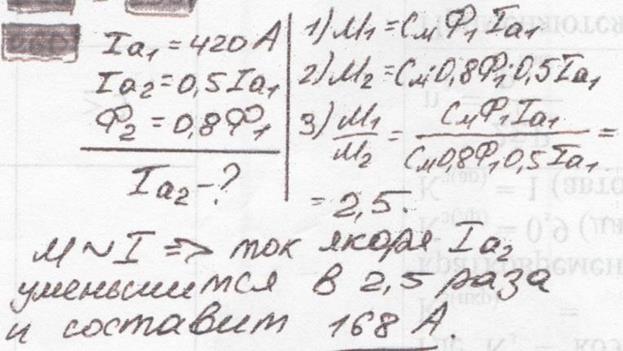 Ia₁ = 420 А
Ia₂ = 0,5 Ia₁
Ф₂ = 0,8 Ф₁
Ia₂ - ?
1) М₁ = См Ф₁ Ia₁
2) М₂ = См·0,8Ф₁·0,5 Ia₁
3) М₁/М₂ = См Ф₁ Ia₁ / См 0,8 Ф₁ 0,5 Ia₁ =
= 2,5.
М ~ I => ток якоря Ia₂
уменьшится в 2,5 раза
и составит 168 А.